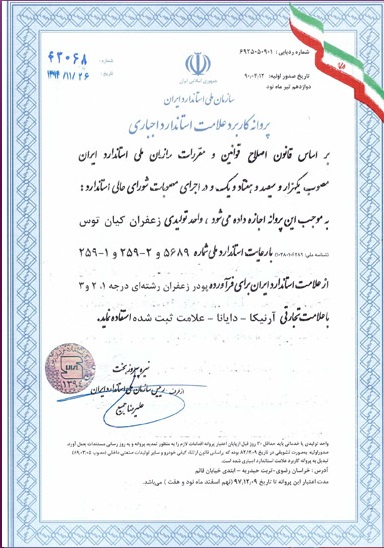 شماره ردیابی: ۶۹۲۵۰۵۰۹۰۱
شماره: ۴۳۰۶۸
تاریخ: ۱۳۹۴/۱۱/۲۶
تاریخ صدور اولیه: ۹۰/۰۴/۱۲
دوازدهم تیر ماه نود
جمهوری اسلامی ایران
سازمان ملی استاندارد ایران
پروانه کاربرد علامت استاندارد اجباری
بر اساس قانون اصلاح قوانین و مقررات سازمان ملی استاندارد ایران
مصوب یکهزار و سیصد و هفتاد و یک و در اجرای مصوبات شورای عالی استاندارد:
به موجب این پروانه اجازه داده می‌شود، واحد تولیدی زعفران کیان توس
(شناسه ملی: ) با رعایت استاندارد ملی شماره ۵۶۸۹ و ۲-۲۵۹ و ۱-۲۵۹
از علامت استاندارد ایران برای فرآورده پودر زعفران رشته‌ای درجه ۱، ۲ و ۳
با علامت تجارتی آرنیکا - دایانا - علامت ثبت شده استفاده نماید.
نیره پیروزبخت
رییس سازمان ملی استاندارد ایران
از طرف
۱۳۹۴
واحد تولیدی یا خدماتی باید حداقل ۳۰ روز قبل از پایان اعتبار پروانه اقدامات لازم را به منظور تمدید پروانه و به روز رسانی مستندات بعمل آورد.
تبدیل به پروانه کاربرد علامت استاندارد اجباری شده است.
آدرس: خراسان رضوی-تربت حیدریه - ابتدی خیابان قائم
مدت اعتبار این پروانه تا تاریخ ۹۷/۱۲/۰۹ (نهم اسفند ماه نود و هفت) می‌باشد.